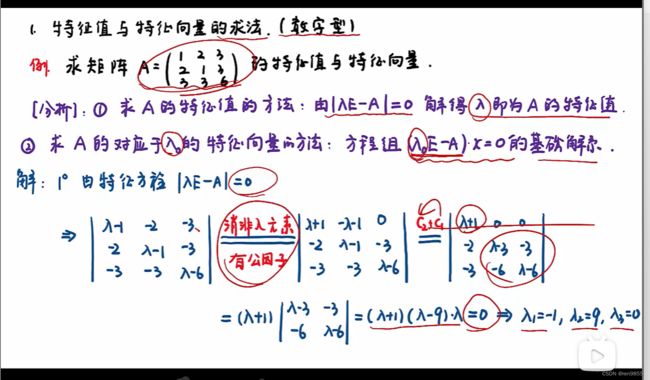 1. 特征值与特征向量的求法.(数字型)
例. 求矩阵 A=(1 2 3; 2 1 3; 3 3 6) 的特征值与特征向量.
[分析]: ① 求A的特征值的方法: 由|λE-A|=0 解得λ即为A的特征值.
② 求A的对应于λ₀的特征向量的方法: 方程组(λ₀E-A)·x=0的基础解系.
解: 1° 由特征方程 |λE-A|=0
⇒ |λ-1 -2 -3; -2 λ-1 -3; -3 -3 λ-6| 消非λ元素 有公因子 = |λ+1 -λ-1 0; -2 λ-1 -3; -3 -3 λ-6| C₂+C₁ = |λ+1 0 0; -2 λ-3 -3; -3 -6 λ-6|
= (λ+1) |λ-3 -3; -6 λ-6| = (λ+1)(λ-9)·λ=0 ⇒ λ₁=-1, λ₂=9, λ₃=0